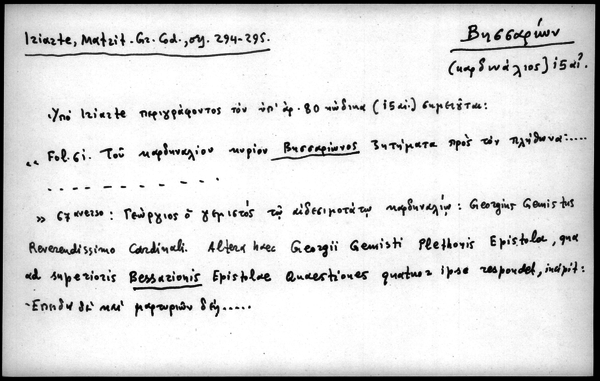 Iriarte, Matrit. Gr. Cd., ση. 294-295.
Βησσαρίων
(καρδινάλιος) ι5 αἰ.
Ὑπὸ Iriarte περιγράφοντος τὸν ὑπ' ἀρ. 80 κώδικα (ι5 αἰ.) σημειοῦται:
„ Fol. 61. Τοῦ καρδηναλίου κυρίου Βησσαρίωνος Ζητήματα πρὸς τὸν πλήθωνα.....
- - - - - - - - -
» Ex averso: Γεώργιος ὁ γεμιστὸς τῷ αἰδεσιμοτάτῳ καρδηναλίῳ: Georgius Gemistus
Reverendissimo Cardinali. Altera haec Georgii Gemisti Plethonis Epistola, qua
ad superioris Bessarionis Epistolae Quaestiones quatuor ipse respondet, incipit:
Ἐπειδὴ δὲ καὶ μαρτυριῶν δεῖ.....